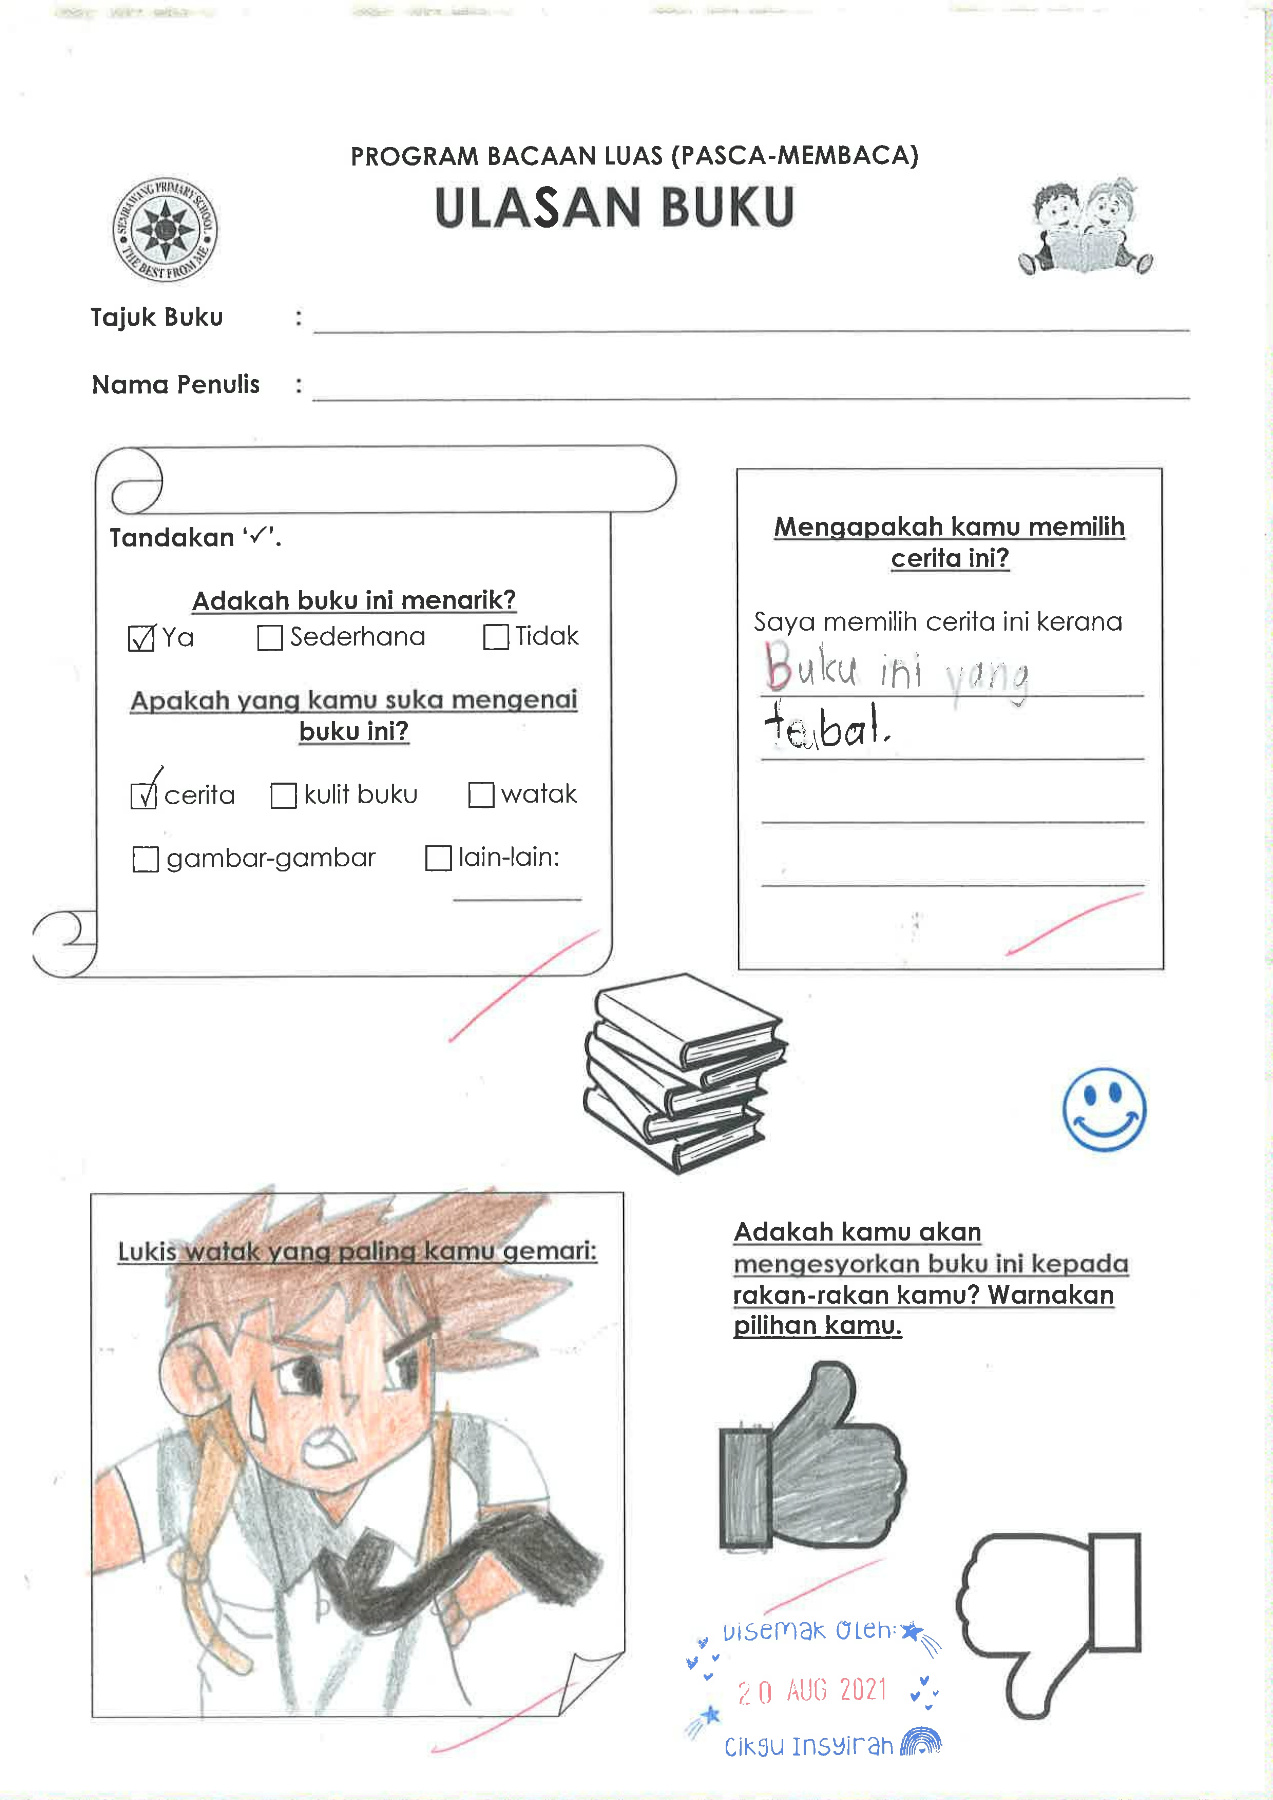 PROGRAM BACAAN LUAS (PASCA-MEMBACA)
ULASAN BUKU
SEMBAWANG PRIMARY SCHOOL
THE BEST FROM ME
Tajuk Buku :
Nama Penulis :
Tandakan ‘✓’.
Adakah buku ini menarik?
☑ Ya ☐ Sederhana ☐ Tidak
Apakah yang kamu suka mengenai
buku ini?
☑ cerita ☐ kulit buku ☐ watak
☐ gambar-gambar ☐ lain-lain:
Mengapakah kamu memilih
cerita ini?
Saya memilih cerita ini kerana
Buku ini yang
tebal.
Lukis watak yang paling kamu gemari:
Adakah kamu akan
mengesyorkan buku ini kepada
rakan-rakan kamu? Warnakan
pilihan kamu.
Disemak Oleh:
20 AUG 2021
Cikgu Insyirah